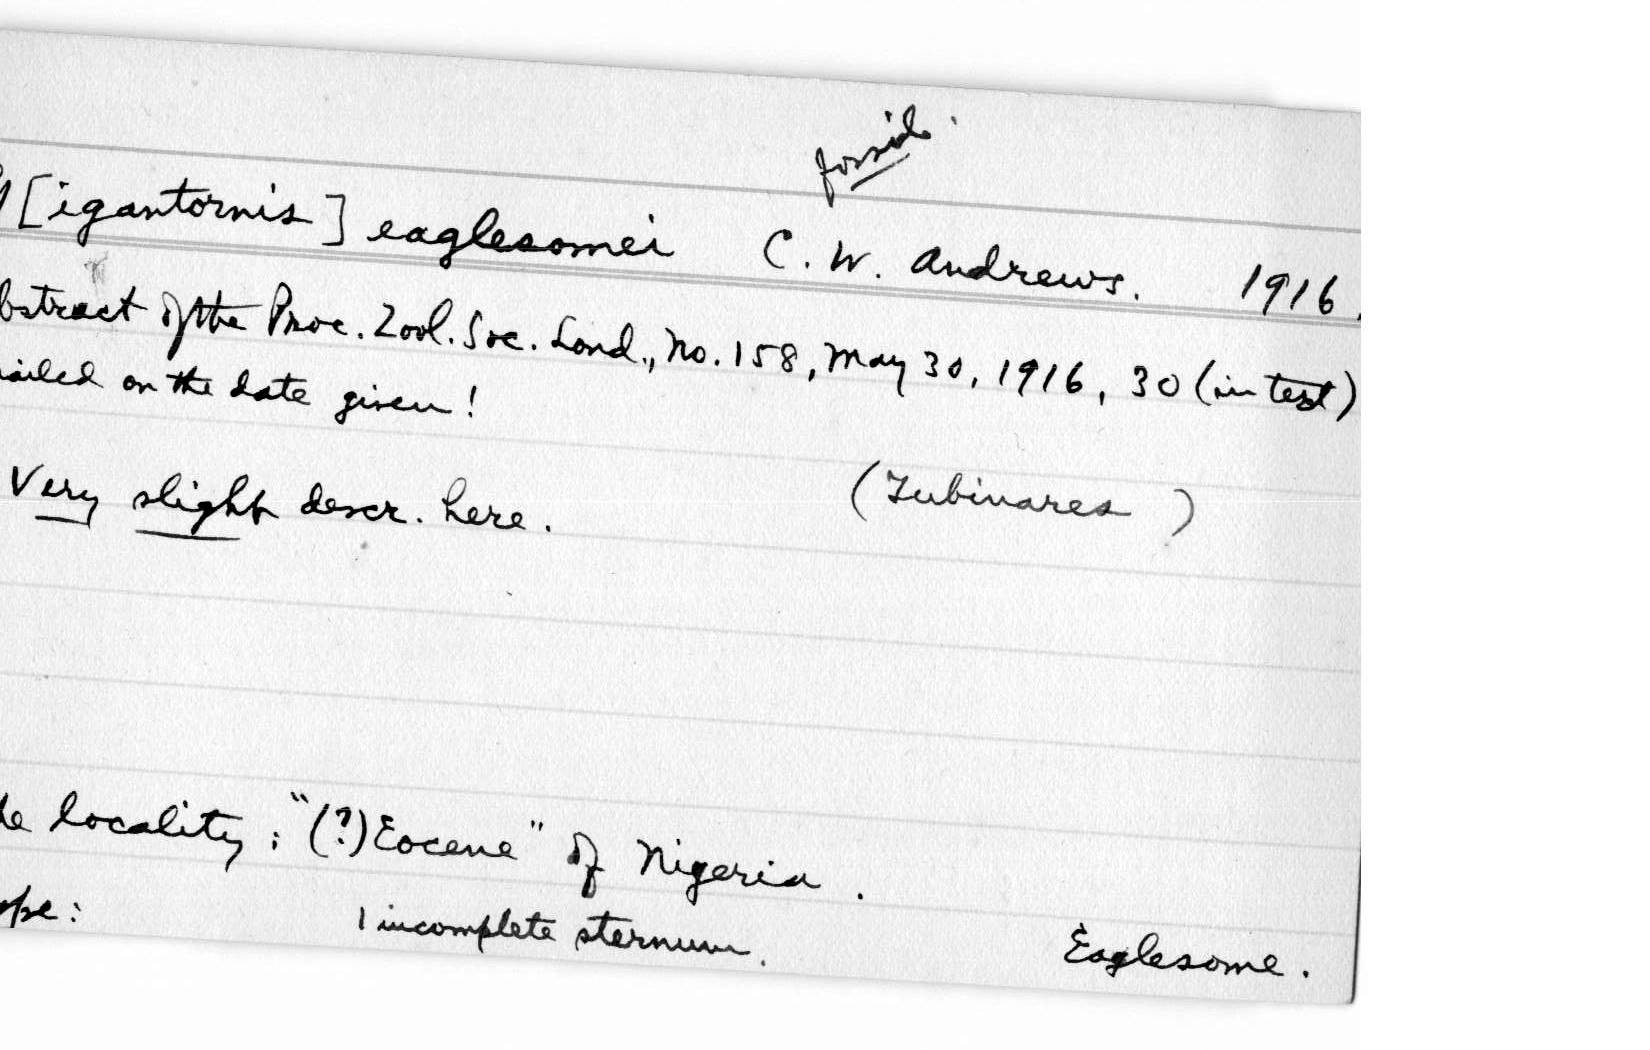 fossil.
G[igantornis] eaglesomei C. W. Andrews. 1916.
bstract of the Proc. Zool. Soc. Lond., No. 158, May 30, 1916, 30 (in text)
ailed on the date given!
Very slight descr. here. (Tubinares)
locality: "(?)Eocene" of Nigeria.
ype: 1 incomplete sternum. Eaglesome.